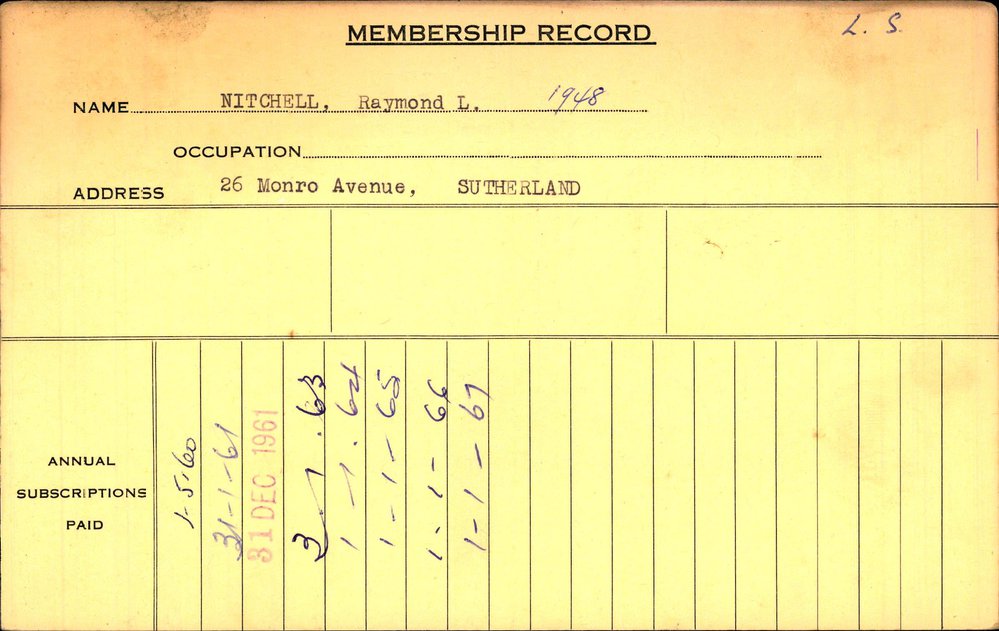 MEMBERSHIP RECORD
L. S.
NAME NITCHELL, Raymond L. 1948
OCCUPATION
ADDRESS 26 Monro Avenue, SUTHERLAND
ANNUAL
SUBSCRIPTIONS
PAID
1-5-60
31-1-61
31 DEC 1961
3-1.63
1-1.64
1-1-65
1-1-66
1-1-67